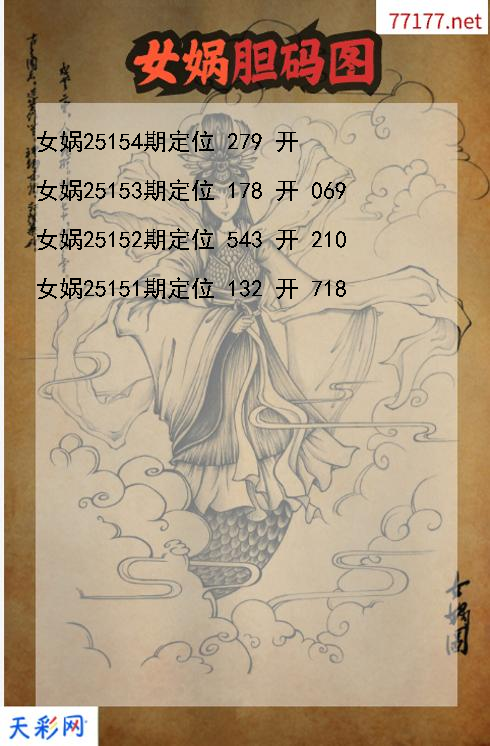 77177.net
女娲胆码图
女娲25154期定位 279 开
女娲25153期定位 178 开 069
女娲25152期定位 543 开 210
女娲25151期定位 132 开 718
女娲图
天彩网